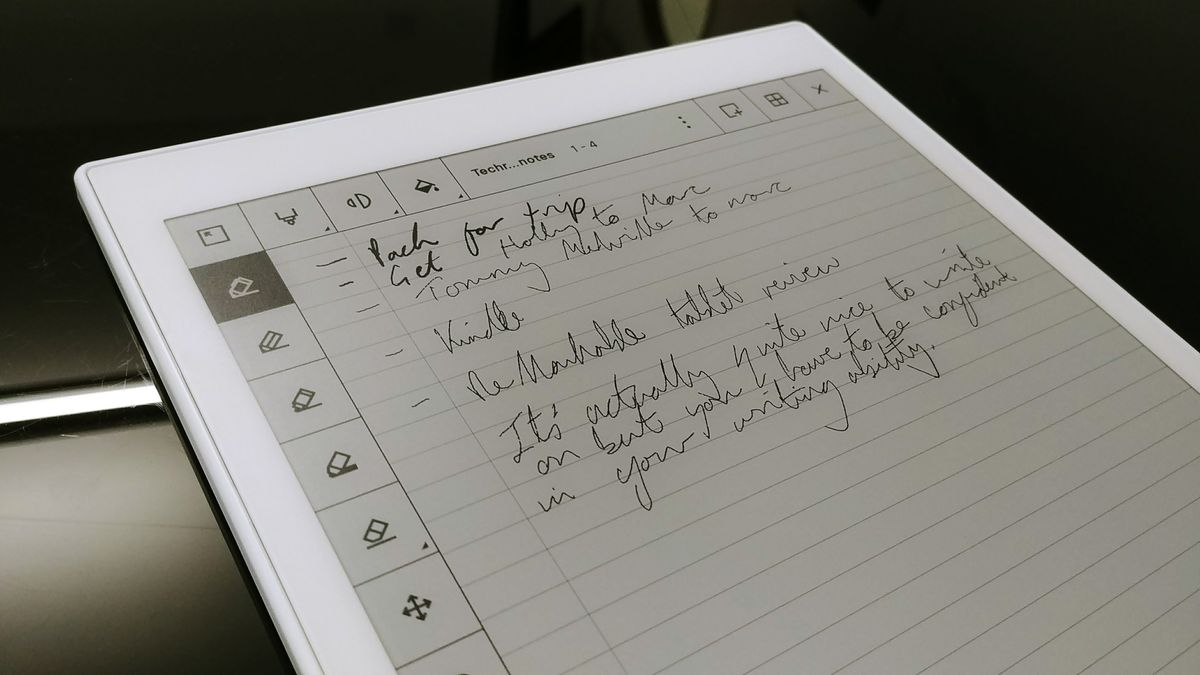 Techr...notes 1-4
– Pack for trip
– Get Holly to Marc
– Tommy Melville to
– Kindle
– ReMarkable tablet review
It's actually quite nice to write
on but you have to be confident
in your writing ability.